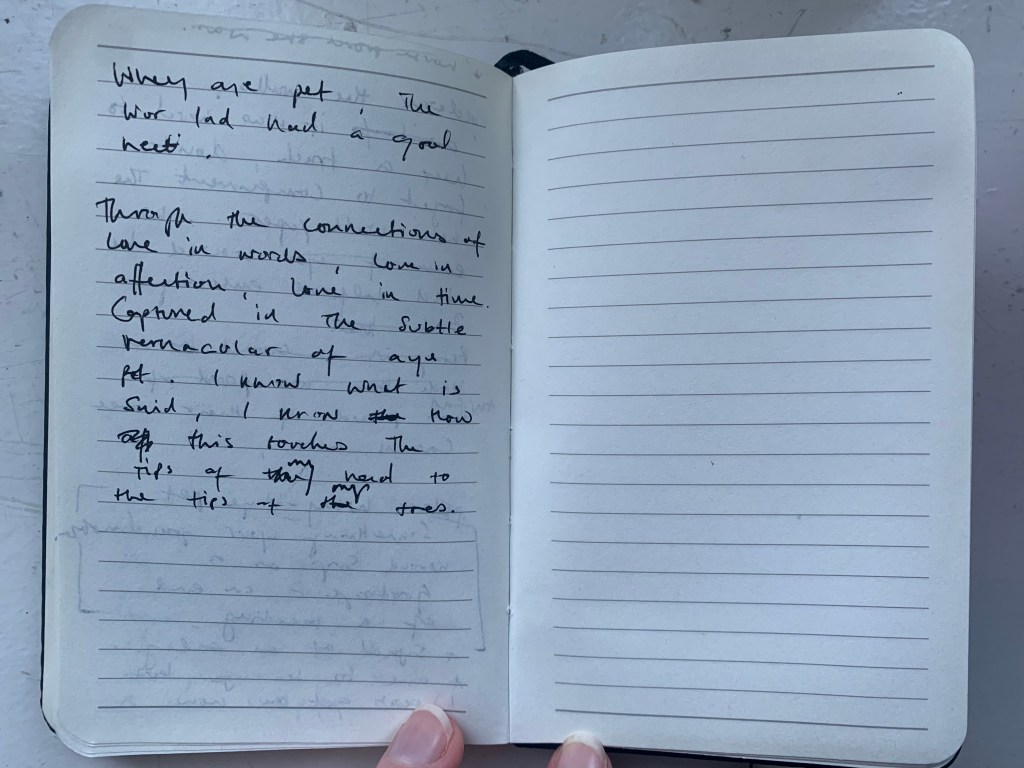 Whey aye pet, The
Wor lad had a good
neet.
Through the connections of
love in words, love in
affection, love in time.
Captured in The subtle
vernacular of aye
pet. I know what is
said, I know how
this touches The
Tips of my head to
the tips of my toes.